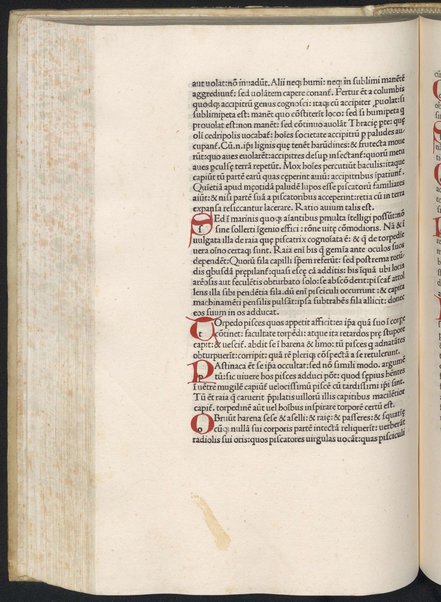 aut uolat: nõ inuadũt. Alii neq; humi: neq; ĩ sublimi manẽtẽ
aggrediunt̃: sed uolãtem capere conant̃. Fertur ẽt a columbis
quodq; accipitrũ genus cognosci: itaq; cũ accipiter ꝓuolat: si
sublimipeta est: manẽt quo cõstiterĩt loco: sed si humipeta q̃
prouolat est: non manẽt: sed cõtinuo auolãt Thraciẹ pte: quẹ
oli cedripolis uocabat̃: hoĩes societate accipitrũ p paludes au
cupant̃. Cũ.n.ipi lignis que tenẽt harũdines: & frutecta moue
rũt: quo aues euolarẽt: accipitres desup insectant̃: quorũ metu
aues pculsẹ terrã repetũt. Mox hoĩes percutiũt baculis: itaq;
capiũt tũ partẽ earũ quas ceperint auiũ: accipitribus ĩpatiunt̃.
Quietiã apud mẹotida paludẽ lupos esse piscatorũ familiares
aiũt: & nisi partẽ suã a piscatoribus acceperint: retia cũ in terra
expansa resiccantur lacerare. Ratio auium talis est.
Sed ĩ marinis quoq; aĩantibus pmulta ĩtelligi possũt: nõ
sine sollerti igenio effici: rõne uitẹ cõmodioris. Nã & ĩ
uulgata illa de raia quẹ piscatrix cognoĩata ẽ: & q̃ de torpedĩe
uera oĩno certaq; sunt. Raia enĩ bis q̃ gemĩa ante oculos suos
dependẽt: Quorũ fila capilli spem referũt: sed postrema rotũ
dis qbusdã prepilant̃: quasi escẹ cã additis: bis ĩquã ubi locis
arẽosis aut fẹculẽtis obturbato solo: se abscõdent ipĩ escat̃ attol
lens illa sibi pendẽtia fila. dũ enĩ pisciculi occurrunt: & capita
machinamẽti pensilis pulsãt: ipsa subtrahẽs fila allicit: donec
eos suum in os adducat.
Torpedo pisces quos appetit afficit: ea ipã quã suo ĩ corpe
cõtinet: facultate torpẽdi: atque ita retardos prẹ stupore
capit: & uescit̃. abdit se ĩ harena & limo: tũ pisces q adnatãtes
obturpuerĩt: corripit: quã rẽ pleriq; cõspectã a se retulerunt.
Pastinaca ẽt se ipa occultat: sed nõ simili modo. argumẽ
tũ: sic uiuere hos pisces adduci põt: quod sẹpius hẽntes
ĩ uẽtre mugilẽ capiũt̃ uelocissimũ piscẽ cũ tardissimi ipĩ sint.
Tũ ẽt raia q̃ caruerit p̃latis uillorũ illis capitibus macilẽtior
capit̃. torpedinẽ aũt uel hoĩbus inspirare torporẽ certũ est.
Obruũt harena sese & aselli: & raiẹ: & passeres: & squatiñe
cũq; nulla sui corporis partẽ intectã reliquerĩt: uerberãt
radiolis sui oris: quos piscatores uirgulas uocãt: quas pisciculi